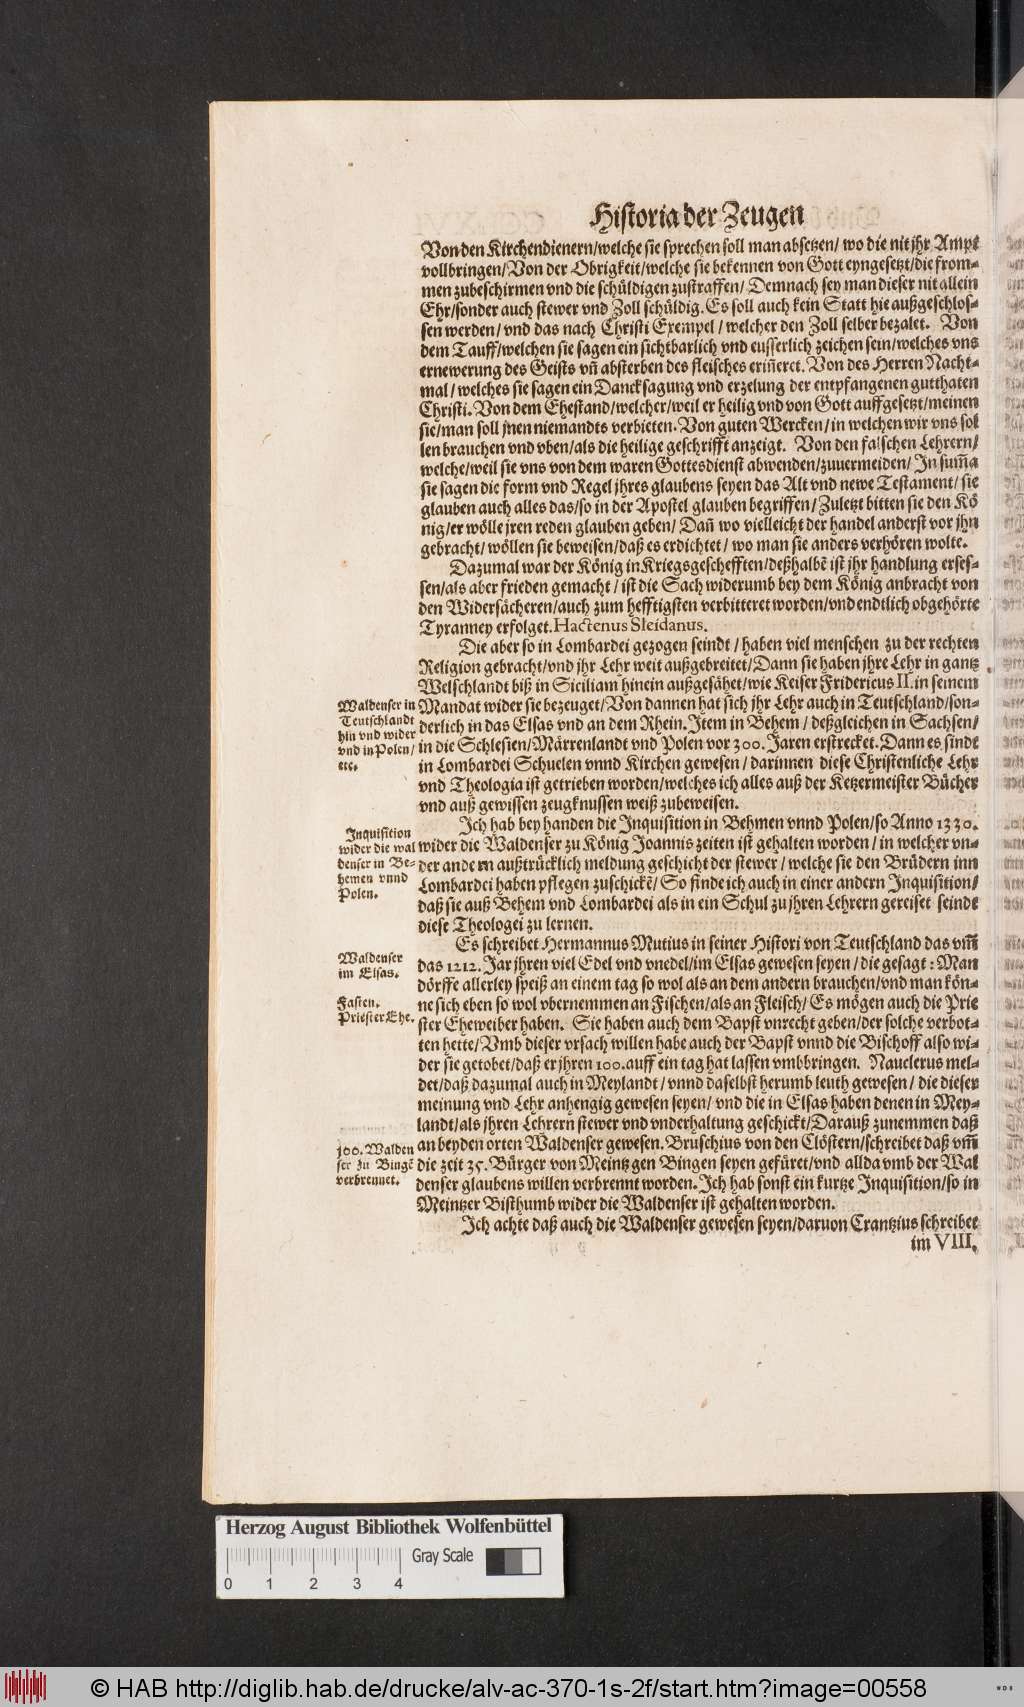 Historia der Zeugen
Von den Kirchendienern/welche sie sprechen soll man absetzen/ wo die nit jhr Ampt
vollbringen/Von der Obrigkeit/welche sie bekennen von Gott eyngesetzt/die from-
men zubeschirmen vnd die schüldigen zustraffen/ Demnach sey man dieser nit allein
Ehr/sonder auch stewer vnd Zoll schüldig. Es soll auch kein Statt hie außgeschlos-
sen werden/ vnd das nach Christi Exempel/ welcher den Zoll selber bezalet. Von
dem Tauff/welchen sie sagen ein sichtbarlich vnd eusserlich zeichen sein/welches vns
ernewerung des Geists vn̄ absterben des fleisches erin̄eret. Von des Herren Nacht-
mal/ welches sie sagen ein Dancksagung vnd erzelung der entpfangenen gutthaten
Christi. Von dem Ehestand/welcher/weil er heilig vnd von Gott auffgesetzt/meinen
sie/man soll jnen niemandts verbieten. Von guten Wercken/in welchen wir vns sol
len brauchen vnd vben/als die heilige geschrifft anzeigt. Von den falschen Lehrern/
welche/weil sie vns von dem waren Gottesdienst abwenden/zuuermeiden/ In sum̄a
sie sagen die form vnd Regel jhres glaubens seyen das Alt vnd newe Testament/ sie
glauben auch alles das/so in der Apostel glauben begriffen/ Zuletzt bitten sie den Kö
nig/er wölle jren reden glauben geben/ Dan̄ wo vielleicht der handel anderst vor jhn
gebracht/ wöllen sie beweisen/daß es erdichtet/ wo man sie anders verhören wolte.
Dazumal war der König in Kriegsgeschefften/deßhalbē ist jhr handlung erses-
sen/als aber frieden gemacht/ ist die Sach widerumb bey dem König anbracht von
den Widersächeren/auch zum hefftigsten verbitteret worden/vnd endtlich obgehörte
Tyranney erfolget. Hactenus Sleidanus.
Die aber so in Lombardei gezogen seindt/ haben viel menschen zu der rechten
Religion gebracht/vnd jhr Lehr weit außgebreitet/Dann sie haben jhre Lehr in gantz
Welschlandt biß in Siciliam hinein außgesähet/wie Keiser Fridericus II. in seinem
Waldenser in
Teutschlandt
hin vnd wider
vnd in Polen/
etc.
Mandat wider sie bezeuget/Von dannen hat sich jhr Lehr auch in Teutschland/son-
derlich in das Elsas vnd an dem Rhein. Item in Behem/ deßgleichen in Sachsen/
in die Schlesien/Märrenlandt vnd Polen vor 300. Jaren erstrecket. Dann es sindt
in Lombardei Schuelen vnnd Kirchen gewesen/ darinnen diese Christenliche Lehr
vnd Theologia ist getrieben worden/welches ich alles auß der Ketzermeister Bücher
vnd auß gewissen zeugknussen weiß zubeweisen.
Inquisition
wider die wal
denser in Be-
hemen vnnd
Polen.
Ich hab bey handen die Inquisition in Behmen vnnd Polen/so Anno 1330.
wider die Waldenser zu König Joannis zeiten ist gehalten worden/ in welcher vn-
der anderen außtrücklich meldung geschicht der stewer/ welche sie den Brüdern inn
Lombardei haben pflegen zuschickē/ So finde ich auch in einer andern Inquisition/
daß sie auß Behem vnd Lombardei als in ein Schul zu jhren Lehrern gereiset seindt
diese Theologei zu lernen.
Waldenser
im Elsas.
Fasten.
Priester Ehe.
Es schreibet Hermannus Mutius in seiner Histori von Teutschland das vm̄
das 1212. Jar jhren viel Edel vnd vnedel/im Elsas gewesen seyen/ die gesagt: Man
dörffe allerley speiß an einem tag so wol als an dem andern brauchen/vnd man kön-
ne sich eben so wol vbernemmen an Fischen/als an Fleisch/ Es mögen auch die Prie
ster Eheweiber haben. Sie haben auch dem Bapst vnrecht geben/der solche verbot-
ten hette/ Vmb dieser vrsach willen habe auch der Bapst vnnd die Bischoff also wi-
der sie getobet/daß er jhren 100. auff ein tag hat lassen vmbbringen. Nauclerus mel-
det/daß dazumal auch in Meylandt/ vnnd daselbst herumb leuth gewesen/ die dieser
meinung vnd Lehr anhengig gewesen seyen/ vnd die in Elsas haben denen in Mey-
landt/als jhren Lehrern stewer vnd vnderhaltung geschickt/Darauß zunemmen daß
100. Walden
ser zu Bingē
verbrennet.
an beyden orten Waldenser gewesen. Bruschius von den Clöstern/schreibet daß vm̄
die zeit 35. Bürger von Meintz gen Bingen seyen gefüret/vnd allda vmb der Wal
denser glaubens willen verbrennt worden. Ich hab sonst ein kurtze Inquisition/so in
Meintzer Bisthumb wider die Waldenser ist gehalten worden.
Ich achte daß auch die Waldenser gewesen seyen/daruon Crantzius schreibet
im VIII.
Herzog August Bibliothek Wolfenbüttel
Gray Scale
0 1 2 3 4
© HAB http://diglib.hab.de/drucke/alv-ac-370-1s-2f/start.htm?image=00558